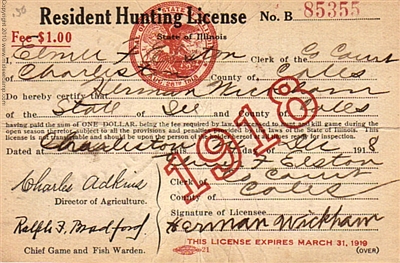 Resident Hunting License No. B 85355
Fee $1.00
State of Illinois
I, Elmer F. Elston Clerk of the G. Court
Charleston County of Coles
Do hereby certify that Herman Wickham
State of Ill Coles
having paid the sum of ONE DOLLAR, being the full fee required by law is licensed to hunt and kill game during the
open season therefor, subject to all the provisions and penalties provided by law of the State of Illinois. This
license is not transferable and should be upon the person of the holder
Dated at Charleston 1918
1918
Elmer F. Elston
Charles Adkins
Clerk Co Court
Director of Agriculture.
County of Coles
Signature of Licensee
Ralph F. Bradford Herman Wickham
THIS LICENSE EXPIRES MARCH 31, 1919
Chief Game and Fish Warden. 21 (OVER)